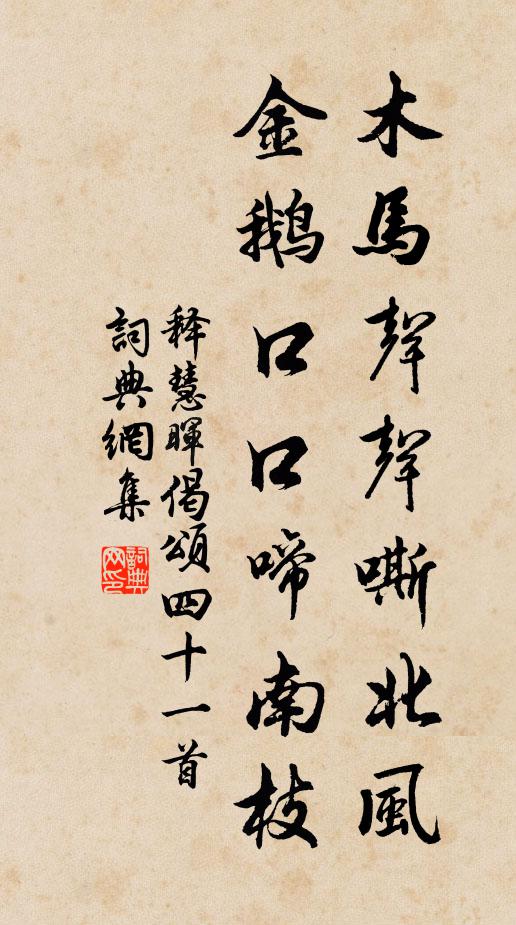 木馬聲聲嘶北風
金鵝口口啼南枝
释慧暉偈頌四十一首
詞典網集
詞典網印